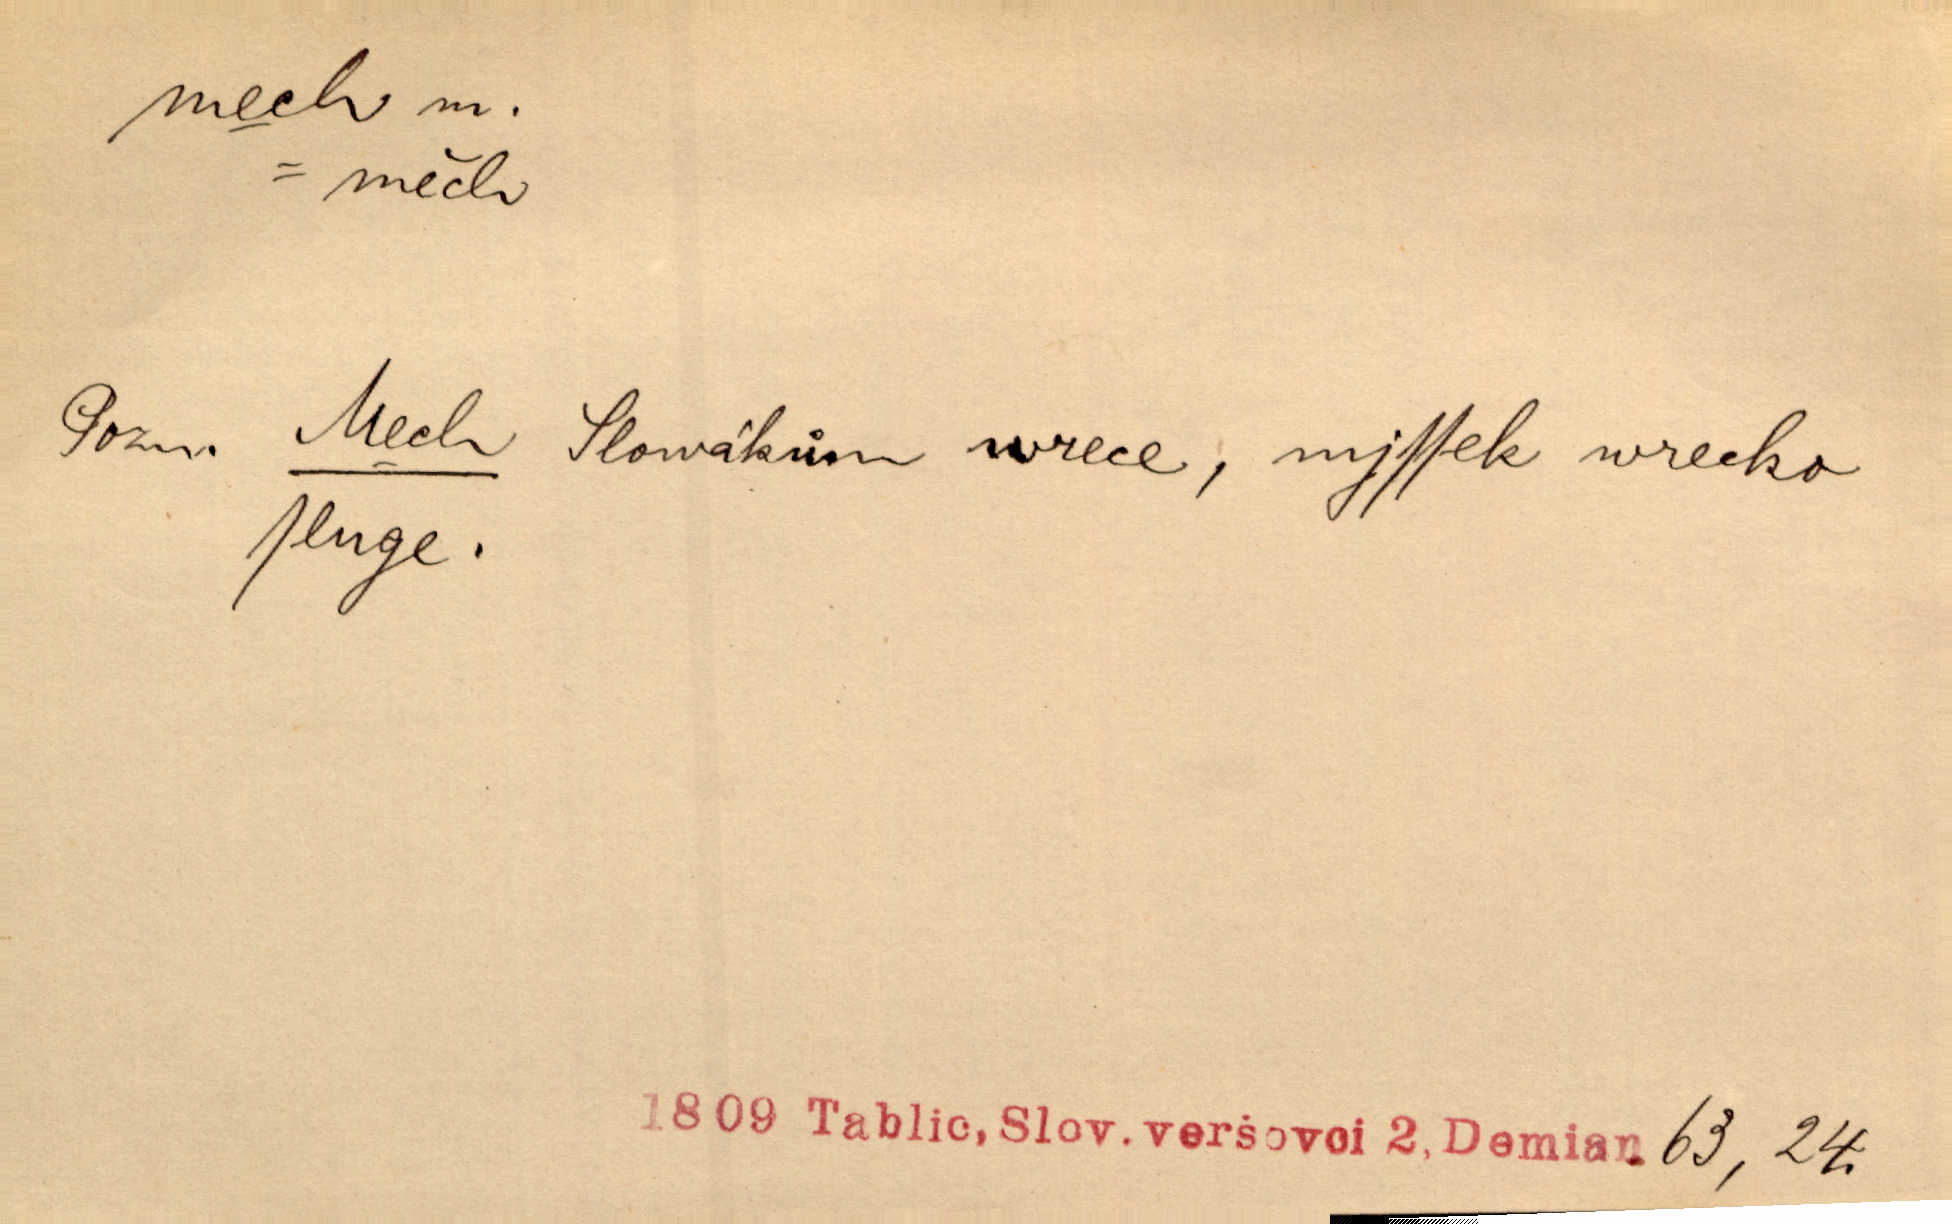 mech m.
= měch
Pozn. Mech Slowákům wrece, mjſſek wrecko
ſluge.
1809 Tablic, Slov. veršovci 2, Demian 63, 24.